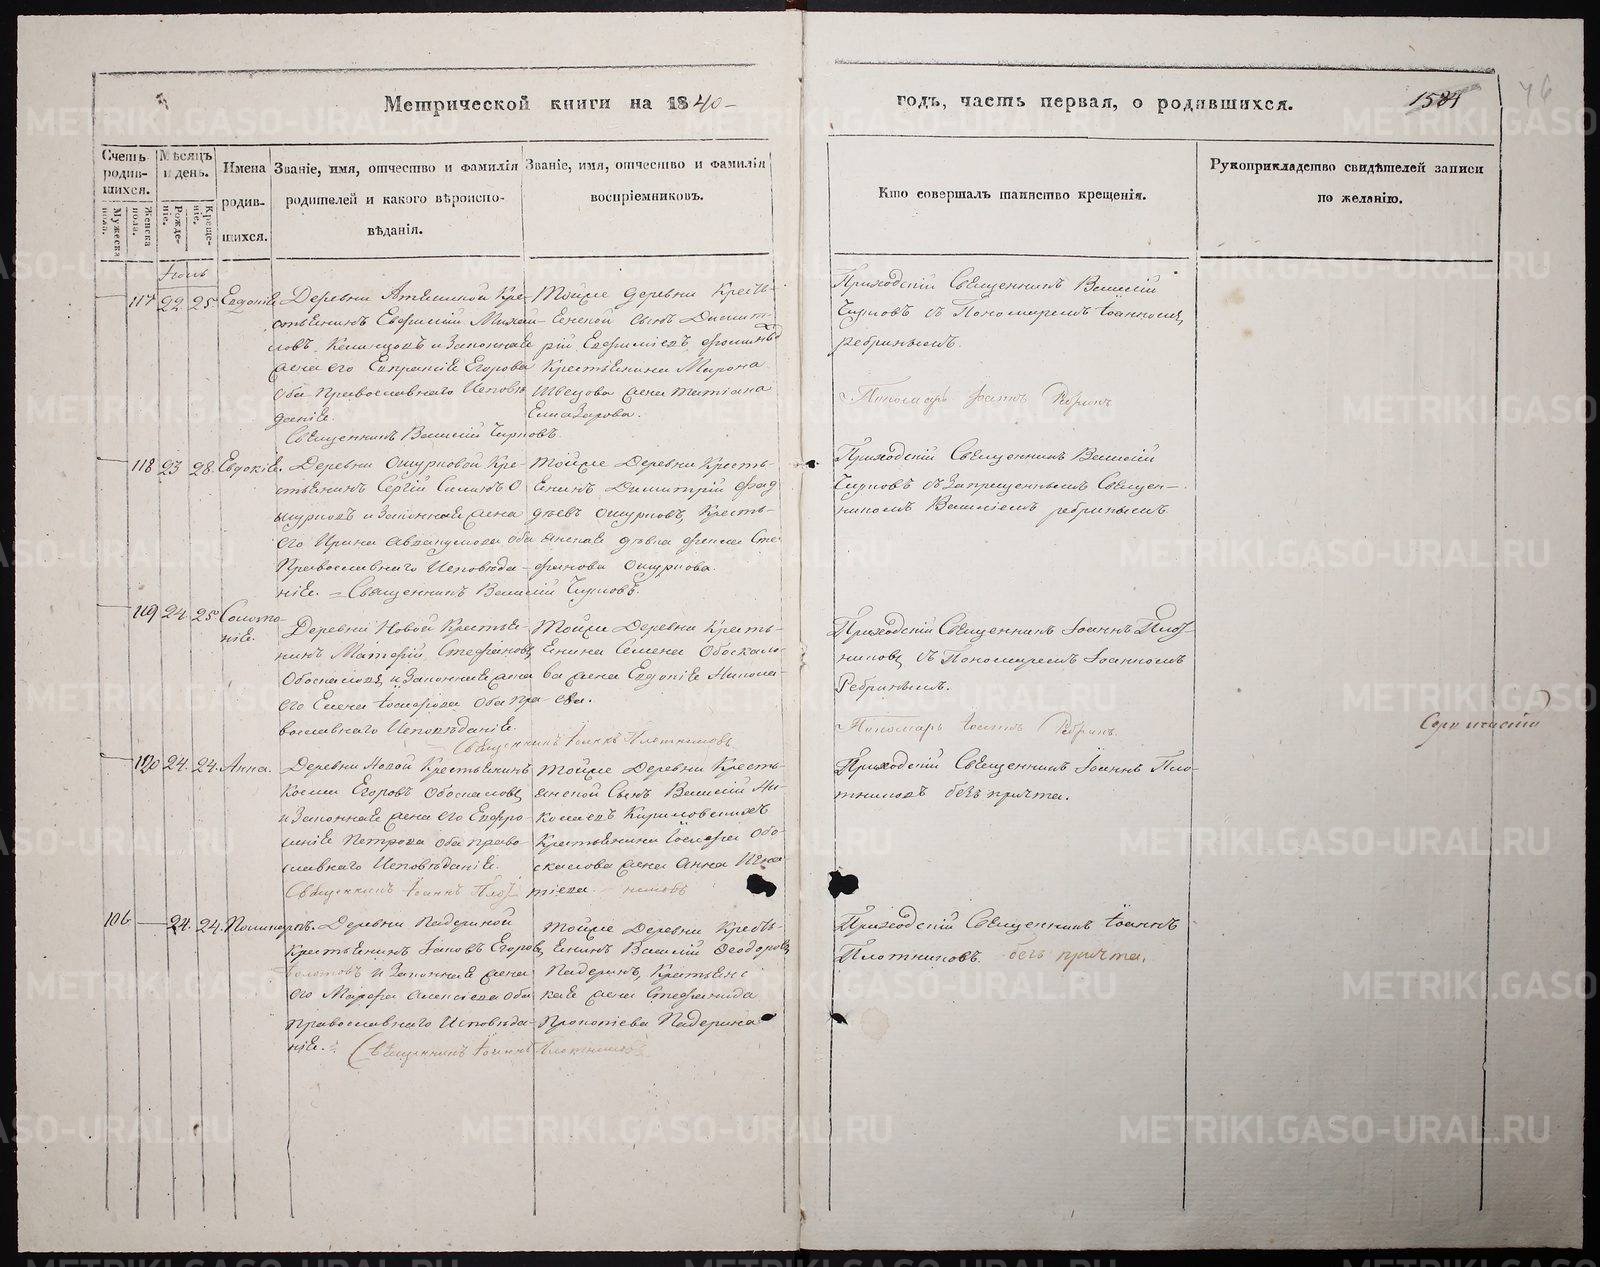 Метрической книги на 1840
годъ, часть первая, о родившихся.
1581
76
Счетъ родив-шихся.
Мужеска пола.
Женска пола.
Мѣсяцъ и день.
Рожде-ніе.
Креще-ніе.
Имена родив-шихся.
Званіе, имя, отчество и фамилія
родителей и какого вѣроиспо-
вѣданія.
Званіе, имя, отчество и фамилія
воспріемниковъ.
Кто совершалъ таинство крещенія.
Рукоприкладство свидѣтелей записи
по желанію.
117 22 25 Евдокіе
Деревни Кре-
стьянинъ Евфимій Михай-
ловъ и Законная
жена его Евпраксіе Егорова
оба Православнаго Исповѣ
даніе.
Священникъ Василій Чирковъ.
Тойже деревни Кресть-
енской сынъ Димит-
рій Евфиміевъ
Крестьянина Мирона
Швецова жена Татіана
Елиазарова.
Приходскій Священникъ Василій
Чирковъ съ Пономаремъ Іоанномъ
Ребринымъ.
Пономарь Іоаннъ Ребринъ
118 23 28 Евдокіе.
Деревни Ошурковой Кре-
стьенинъ Сергій Силинъ О
шурковъ и Законная жена
его Ирина Аввакумова оба
Православнаго Исповѣда-
ніе. Священникъ Василій Чирковъ.
Тойже Деревни Кресть-
енинъ Димитрій Фад
дѣевъ Ошурковъ, Кресть-
янская дѣвка Сте-
фанова Ошуркова.
Приходскій Священникъ Василій
Чирковъ съ Запрещеннымъ Священ-
никомъ Василіемъ Ребринымъ
119 24 25 Соломо-
ніе.
Деревни Новой Крестье-
нинъ Матфій Стефановъ
Обоскаловъ и Законная жена
его Елена Іосифова Оба пра
вославнаго Исповѣданіе.
Священникъ Іоаннъ Плотниковъ
Тойже Деревни Кресть-
енина Семена Обоскало-
ва жена Евдокіе Никола-
ева.
Приходскій Священникъ Іоаннъ Плот-
никовъ съ Пономаремъ Іоанномъ
Ребринымъ.
Пономарь Іоаннъ Ребринъ.
120 24. 24. Анна.
Деревни Новой Крестьенинъ
Косма Егоровъ Обоскаловъ
и Законная жена его Евфро-
синіе Петрова оба право-
славнаго Исповѣданіе
Священникъ Іоаннъ Плот-
никовъ
Тойже Деревни Кресть-
янской Сынъ Василій Ни-
колаевъ Кириловскихъ
Крестьянина Іосифа Обо-
скалова жена Анна Игна-
тіева.
Приходскій Священникъ Іоаннъ Пло-
тниковъ безъ причта.
106 24. 24. Поликарпъ.
Деревни Падериной
Крестьенинъ Іаковъ Егоровъ
и Законная жена
его Марфа Алексіева Оба
Православнаго Исповѣда-
ніе. Священникъ Іоаннъ Плотниковъ
Тойже Деревни Кресть-
енинъ Василій Феодоровъ
Падеринъ, Крестьенс
кая жена Стефанида
Прокопіева Падерина
Приходскій Священникъ Іоаннъ
Плотниковъ безъ причта.
METRIKI.GASO-URAL.RU